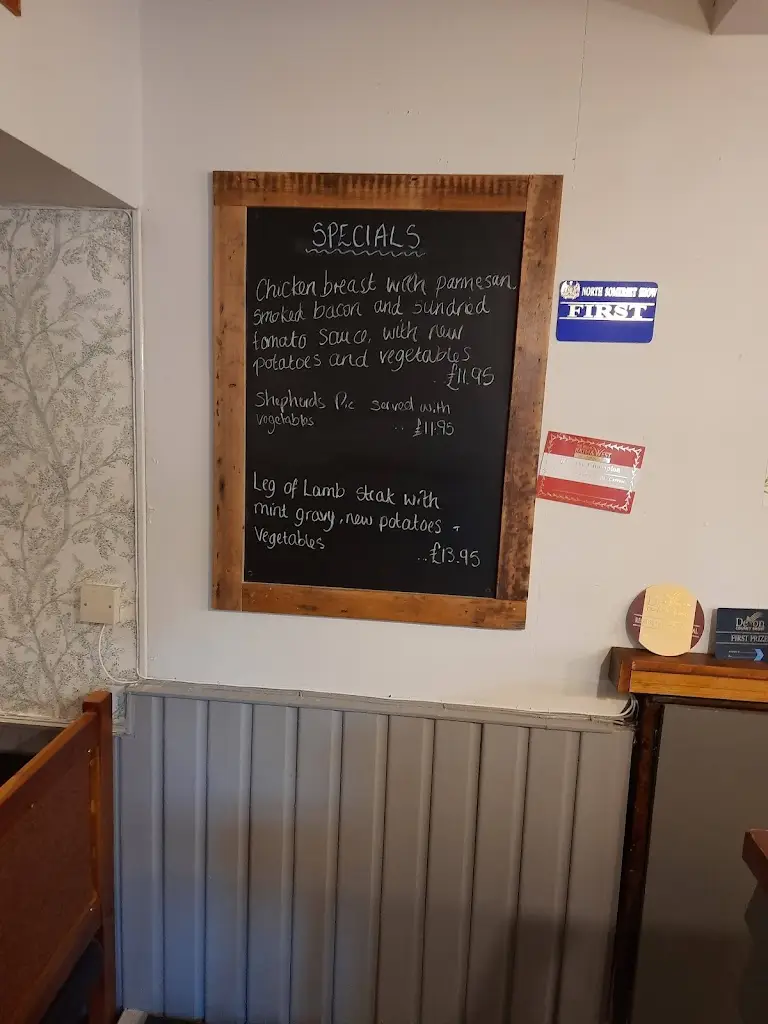 SPECIALS
Chicken breast with parmesan
smoked bacon and sundried
tomato sauce, with new
potatoes and vegetables
£11.95
Shepherds Pie served with
vegetables .. £11.95
Leg of Lamb steak with
mint gravy, new potatoes +
Vegetables
..£13.95
NORTH SOMERSET SHOW
FIRST
Devon
FIRST PRIZE